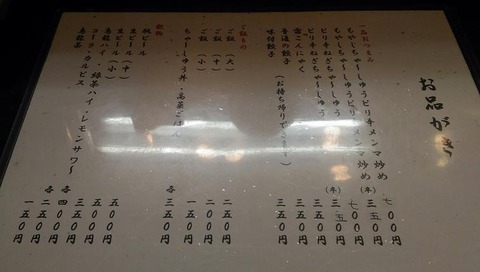 お品がき
一品おつまみ
もやしちゃーしゅうピリ辛メンマ炒め
もやしちゃーしゅうピリ辛メンマ炒め (半)
ピリ辛ねぎちゃーしゅう
ピリ辛ねぎちゃーしゅう (半)
雷こんにゃく 三五〇円
普通の餃子 (お持ち帰りできます) 三五〇円
味付餃子 三五〇円
ご飯もの
ご飯 (大) 二五〇円
ご飯 (中) 二〇〇円
ご飯 (小) 一五〇円
ちゃーしゅう丼・高菜ごはん 各三五〇円
飲物
瓶ビール 五五〇円
生ビール (中) 五〇〇円
生ビール (小) 三五〇円
烏龍ハイ・緑茶ハイ・レモンサワー 各四〇〇円
コーラ・カルピス 各二五〇円
烏龍茶 一五〇円